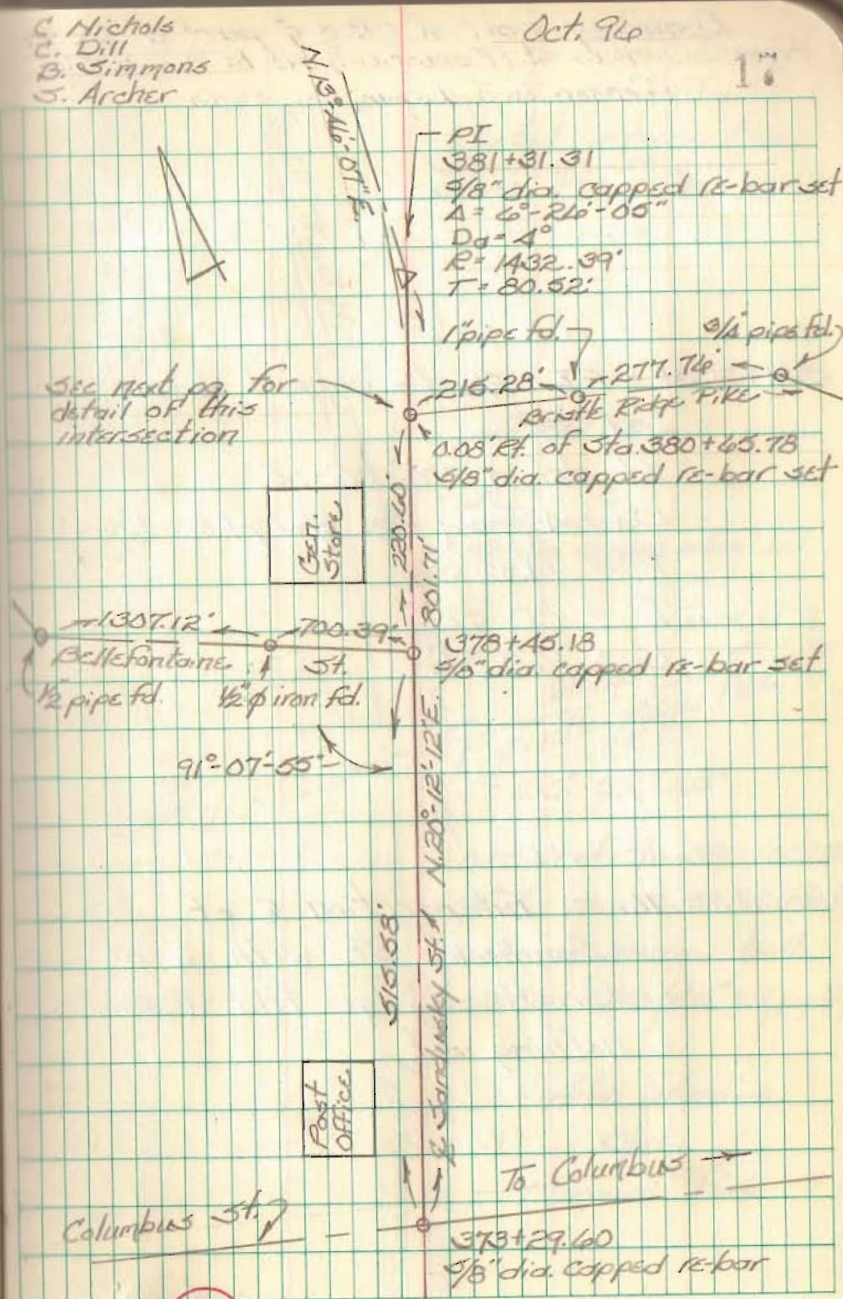 C. Nichols
C. Dill
B. Simmons
S. Archer
Oct. 96
17
N.13°-46'-07"E.
PI
381+31.31
5/8" dia. capped re-bar set
Δ = 6°-26'-05"
Da = 4°
R = 1432.39'
T = 80.52'
1" pipe fd.
3/4" pipe fd.
See next pg. for
detail of this
intersection
216.28'
277.76'
Bristle Ridge Pike
0.08' Rt. of Sta. 380+65.78
5/8" dia. capped re-bar set
Gen.
Store
220.60'
801.71'
1307.12'
700.39'
Bellefontaine St.
378+45.18
5/8" dia. capped re-bar set
1/2" pipe fd.
1/2" ϕ iron fd.
91°-07'-55"
N.20°-12'-12"E.
515.58'
℄ Sandusky St.
Post
Office
To Columbus
Columbus St.
373+29.60
5/8" dia. capped re-bar